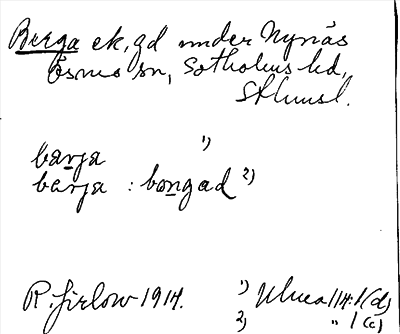 Berga ek, gd under Nynäs
Ösmo sn, Sotholms hd,
Sthlmsl.
barja 1)
barja : bongad 2)
R. Jirlow 1914. 1) Uhca 114:1(d)
2) " 1(c)